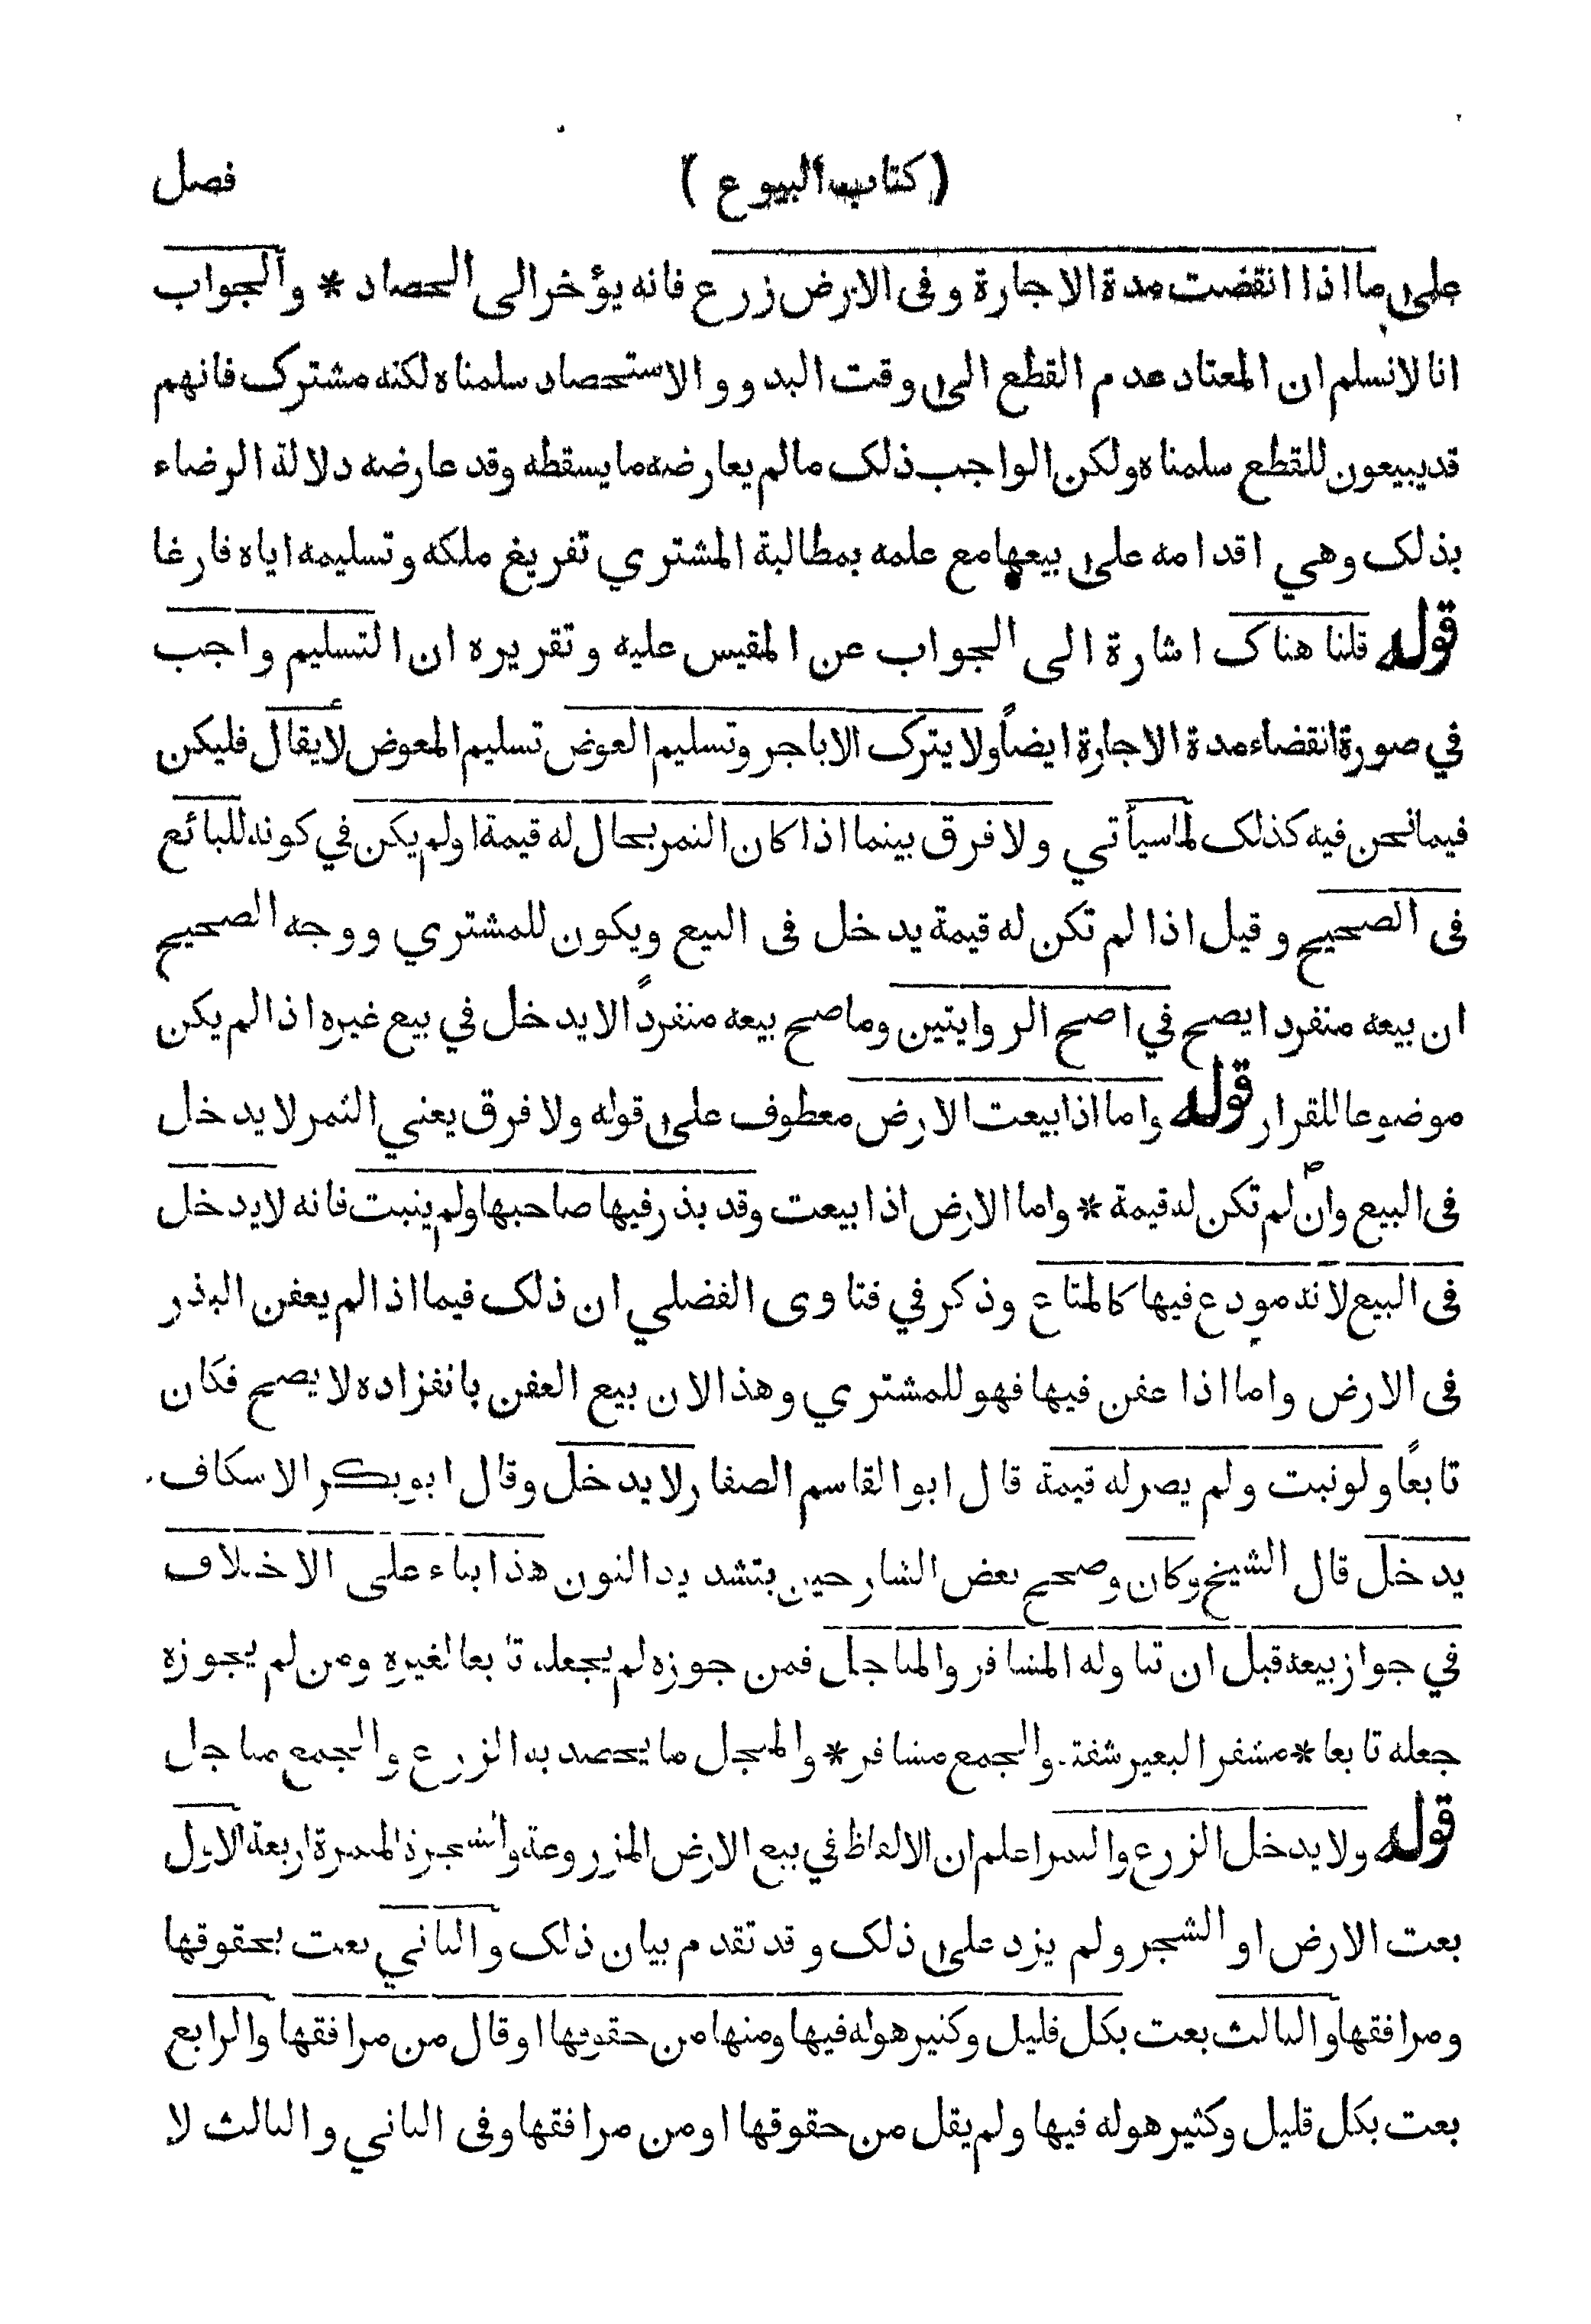 ( كتاب البيوع ) فصل
على ما اذا انقضت مدة الاجارة وفى الارض زرع فانه يؤخر الى الحصاد * والجواب
انا لانسلم ان المعتاد عدم القطع الى وقت البدو والاستحصاد سلمناه لكنه مشترك فانهم
قد يبيعون للقطع سلمناه ولكن الواجب ذلك مالم يعارضه ما يسقطه وقد عارضه دلالة الرضاء
بذلك وهي اقدامه على بيعها مع علمه بمطالبة المشتري تفريغ ملكه وتسليمه اياه فارغا
قوله قلنا هناك اشارة الى الجواب عن المقيس عليه وتقريره ان التسليم واجب
في صورة انقضاء مدة الاجارة ايضاً ولا يترك الا باجر وتسليم العوض تسليم المعوض لأيقال فليكن
فيما نحن فيه كذلك لما سيأتي ولا فرق بينما اذا كان الثمر بحال له قيمة او لم يكن في كونه للبائع
فى الصحيح وقيل اذا لم تكن له قيمة يدخل فى البيع ويكون للمشتري ووجه الصحيح
ان بيعه منفردا يصح في اصح الروايتين وما صح بيعه منفرداً لا يدخل في بيع غيره اذا لم يكن
موضوعا للقرار قوله واما اذا بيعت الارض معطوف على قوله ولا فرق يعني الثمر لا يدخل
فى البيع وان لم تكن له قيمة * واما الارض اذا بيعت وقد بذر فيها صاحبها ولم ينبت فانه لا يدخل
فى البيع لانه مودع فيها كالمتاع وذكر في فتاوى الفضلي ان ذلك فيما اذا لم يعفن البذر
فى الارض واما اذا عفن فيها فهو للمشتري وهذا لان بيع العفن بانفراده لا يصح فكان
تابعاً ولو نبت ولم يصر له قيمة قال ابو القاسم الصفار لا يدخل وقال ابو بكر الاسكاف
يدخل قال الشيخ وكان وصحح بعض الشارحين بتشديد النون هذا بناء على الاختلاف
في جواز بيعه قبل ان تناوله المشافر والمناجل فمن جوزه لم يجعله تابعا لغيره ومن لم يجوزه
جعله تابعا * مشفر البعير شفته والجمع مشافر * والمنجل ما يحصد به الزرع والجمع مناجل
قوله ولا يدخل الزرع والثمر اعلم ان الالفاظ في بيع الارض المزروعة والشجرة المثمرة اربعة الاول
بعت الارض او الشجر ولم يزد على ذلك وقد تقدم بيان ذلك والثاني بعت بحقوقها
ومرافقها والثالث بعت بكل قليل وكثير هو له فيها ومنها من حقوقها او قال من مرافقها والرابع
بعت بكل قليل وكثير هو له فيها ولم يقل من حقوقها او من مرافقها وفى الثاني والثالث لا